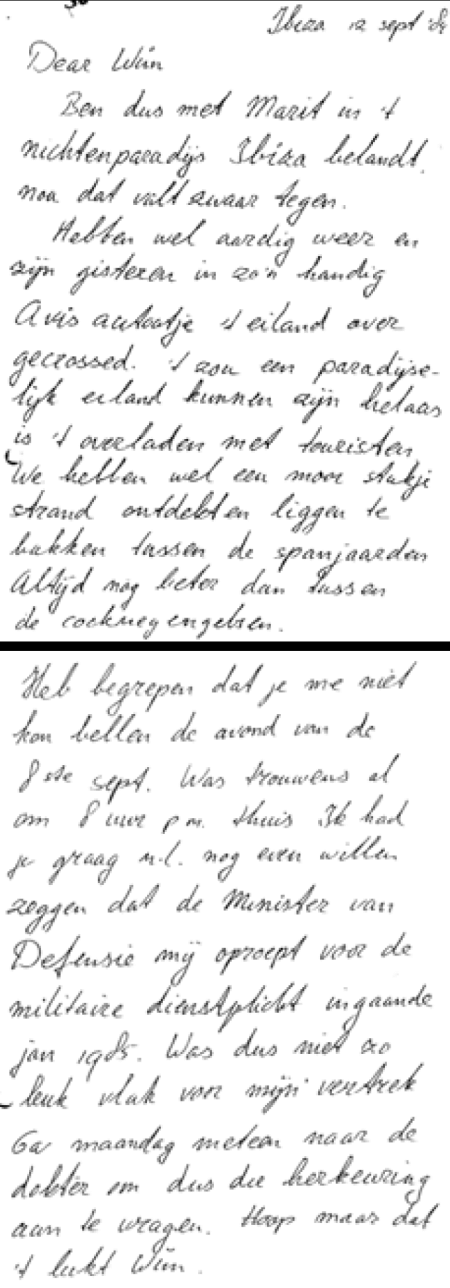 Ibiza 12 sept '84
Dear Wim
Ben dus met Marit in 't
nichtenparadijs Ibiza belandt.
noa dat valt zwaar tegen.
Hebben wel aardig weer en
zijn gisteren in zo'n handig
Avis autootje 't eiland over
gecrossed. 't zou een paradijse-
lijk eiland kunnen zijn helaas
is 't overladen met touristen
We hebben wel een mooi stukje
strand ontdekt en liggen te
bakken tussen de spanjaarden
Altijd nog beter dan tussen
de cockney engelsen.
Heb begrepen dat je me niet
kon bellen de avond van de
8ste sept. Was trouwens al
om 8 uur p.m. thuis Ik had
je graag n.l. nog even willen
zeggen dat de Minister van
Defensie mij oproept voor de
militaire dienstplicht ingaande
jan 1985. Was dus niet zo
leuk vlak voor mijn vertrek
Ga maandag meteen naar de
dokter om dus die herkeuring
aan te vragen. Hoop maar dat
't lukt Wim.